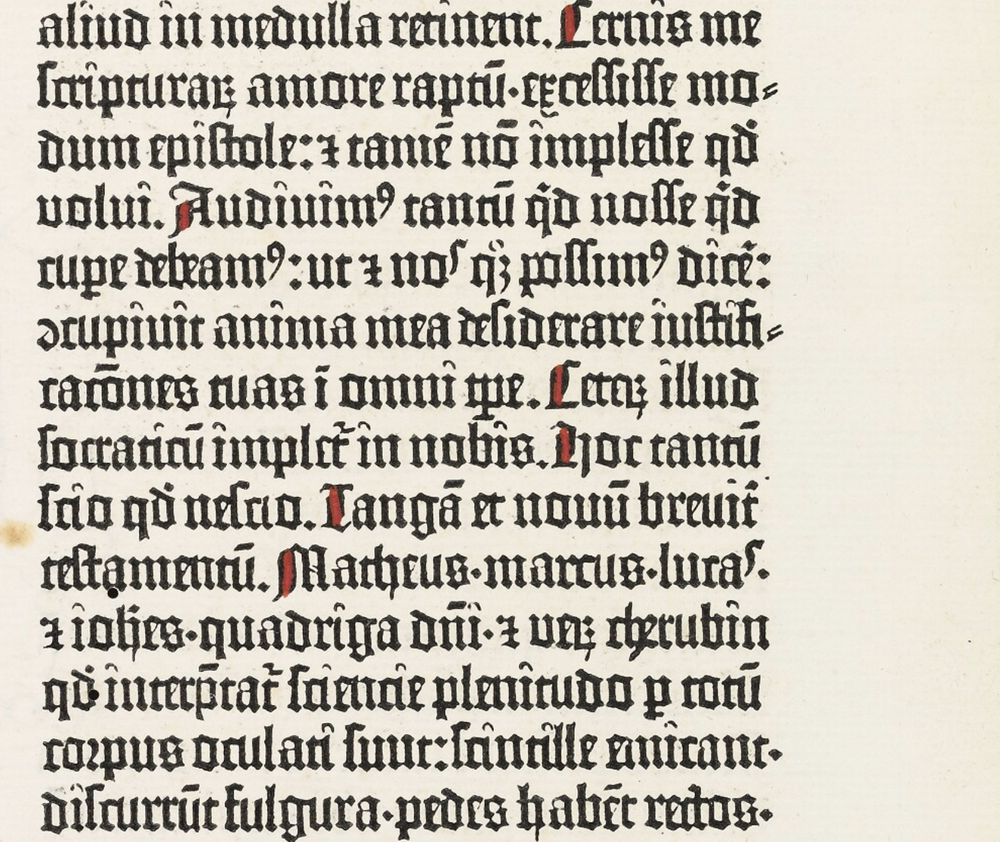 aliud in medulla retinent. Cernis me
scripturaꝝ amore raptū·excessisse mo⸗
dum epistole: ⁊ tamē nō implesse qḋ
volui. Audiuimꝰ tantū q̇d nosse q̇d
cupe debeamꝰ: ut ⁊ nos qꝫ possimꝰ dicē:
ↄcupiuit anima mea desiderare iustifi⸗
cacōnes tuas ī omni tꝑe. Ceteꝝ illud
socraticū implet᷑ in nobis. Hoc tantū
scio qḋ nescio. Tangā et nouū breuit᷑
testamentū. Matheus·marcus·lucas·
⁊ ioh̄es·quadriga dn̄i·⁊ veꝝ cherubin
qḋ interp̄tat᷑ sciencie plenitudo ꝑ totū
corpus oculati sunt: scintille emicant·
discurrūt fulgura·pedes habēt rectos·